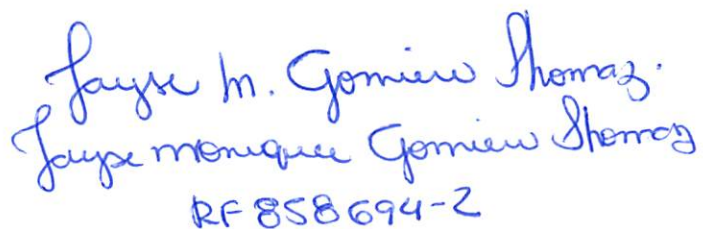 Jayse M. Gomieiro Thomaz.
Jayse Monique Gomieiro Thomaz
RF 858694-2